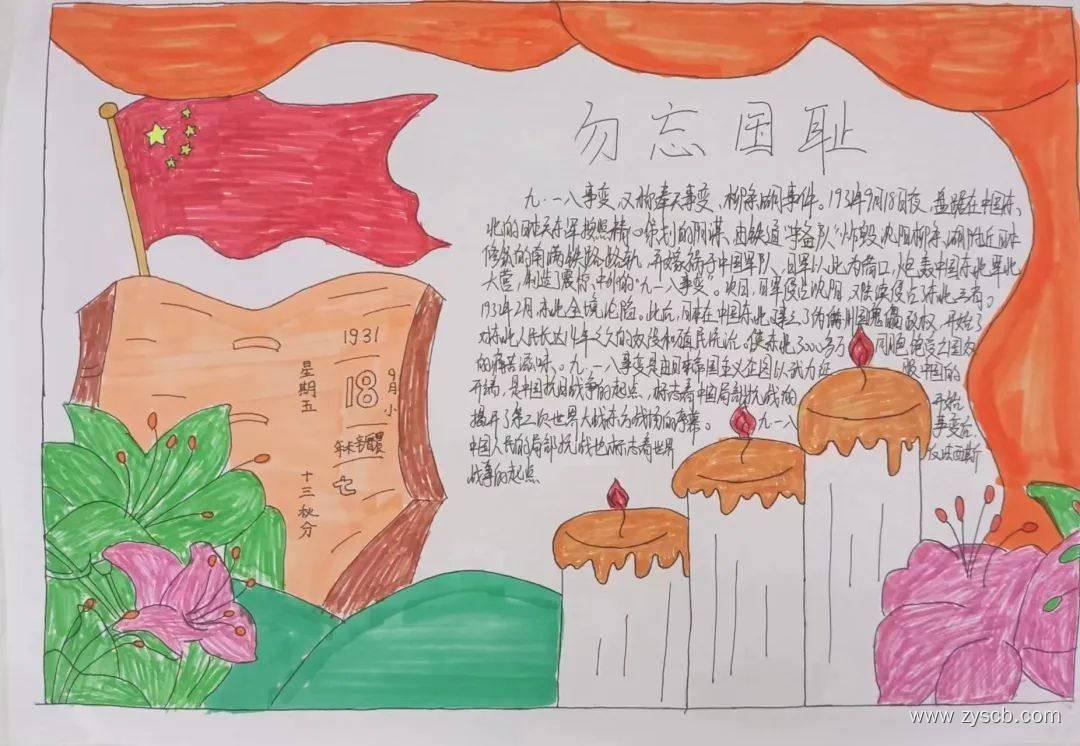 勿忘国耻
九·一八事变，又称奉天事变、柳条湖事件。1931年9月18日夜，盘踞在中国东
北的日本关东军按照精心策划的阴谋，由铁道"守备队"炸毁沈阳柳条湖附近日本
修筑的南满铁路路轨，并嫁祸于中国军队，日军以此为借口，炮轰中国东北军北
大营，制造了震惊中外的"九·一八事变"。次日，日军侵占沈阳，又陆续侵占东北三省。
1932年2月，东北全境沦陷。此后，日本在中国东北建立了伪满州国傀儡政权，开始了
对东北人民长达14年之久的奴役和殖民统治，使东北3000多万 同胞饱受亡国奴
的痛苦滋味。九·一八事变是由日本帝国主义企图以武力征 服中国的
开端，是中国抗日战争的起点，标志着中国局部抗战的 开始
揭开了第二次世界大战东方战场的序幕。 九·一八 事变后
中国人民的局部抗战也标志着世界 反法西斯
战争的起点
1931
星期五
18
9月小
七
十三秋分
www.zyscb.com